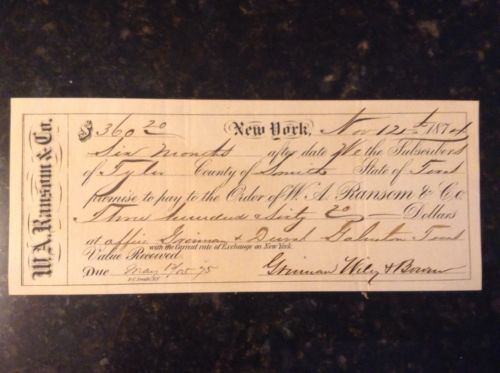 W.A. Ransom & Co.
$360 20 New York, Nov 12th 1874
Six Months after date We the Subscribers
of Tyler County of Smith State of Texas
promise to pay to the Order of W. A. Ransom & Co
Three hundred & Sixty 20 Dollars
at office & Galveston Texas
with the current rate of Exchange on New York.
Value Received
Due May 12/15 75 Wiley &